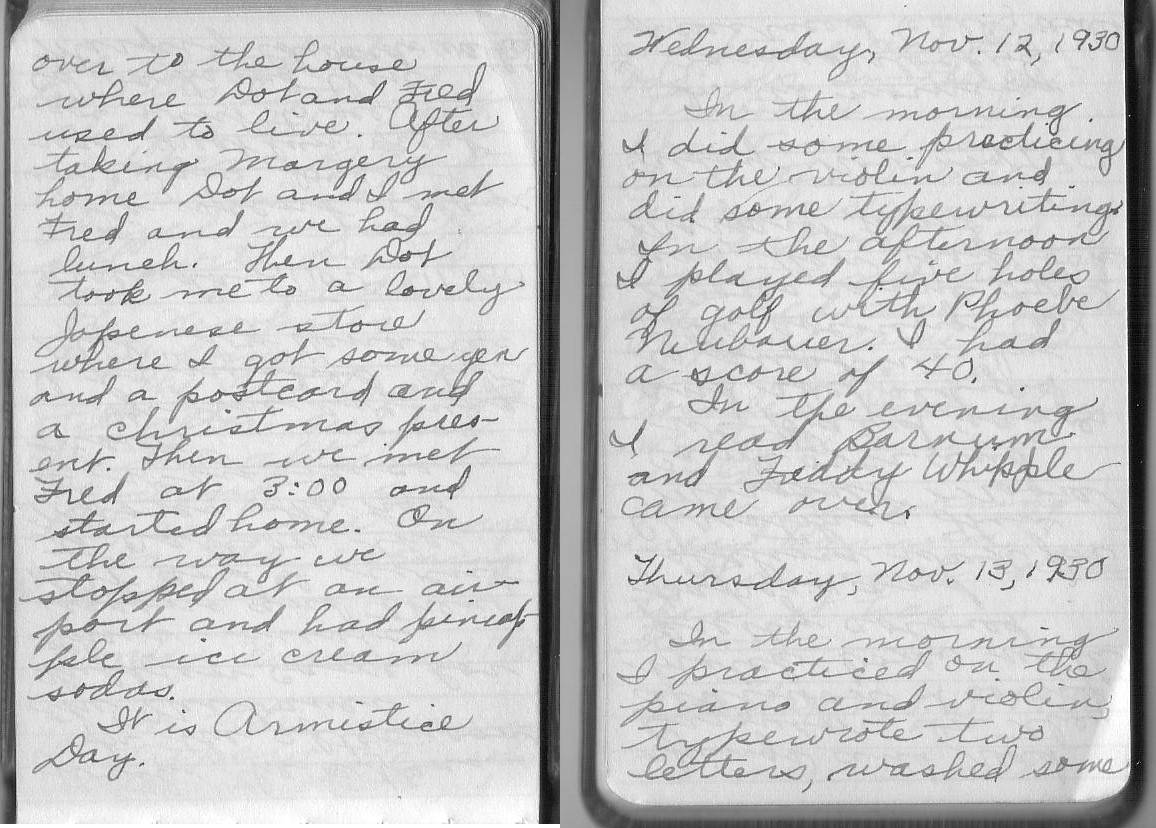 over to the house
where Dot and Fred
used to live. After
taking Margery
home Dot and I met
Fred and we had
lunch. Then Dot
took me to a lovely
Japenese store
where I got some yen
and a postcard and
a christmas pres-
ent. Then we met
Fred at 3:00 and
started home. On
the way we
stopped at an air-
port and had pineap-
ple ice cream
sodas.
It is Armistice
Day.
Wednesday, Nov. 12, 1930
In the morning
I did some practicing
on the violin and
did some typewriting.
In the afternoon
I played five holes
of golf with Phoebe
Neubauer. I had
a score of 40.
In the evening
I read Barnum
and Faddy Whipple
came over.
Thursday, Nov. 13, 1930
In the morning
I practiced on the
piano and violin,
typewrote two
letters, washed some